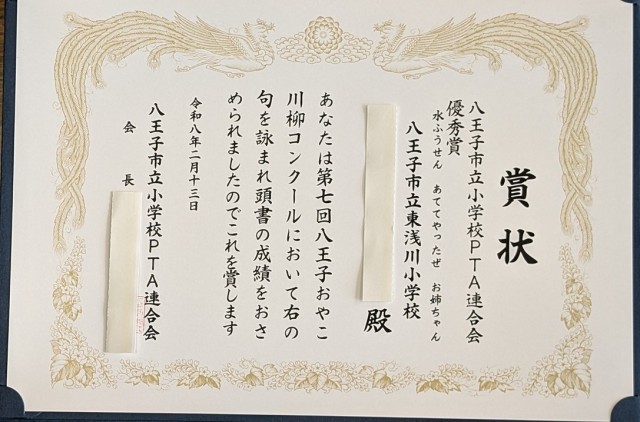 賞状
八王子市立小学校PTA連合会
優秀賞
水ふうせん あててやったぜ お姉ちゃん
八王子市立東浅川小学校
殿
あなたは第七回八王子おやこ
川柳コンクールにおいて右の
句を詠まれ頭書の成績をおさ
められましたのでこれを賞します
令和八年二月十三日
八王子市立小学校PTA連合会
会長